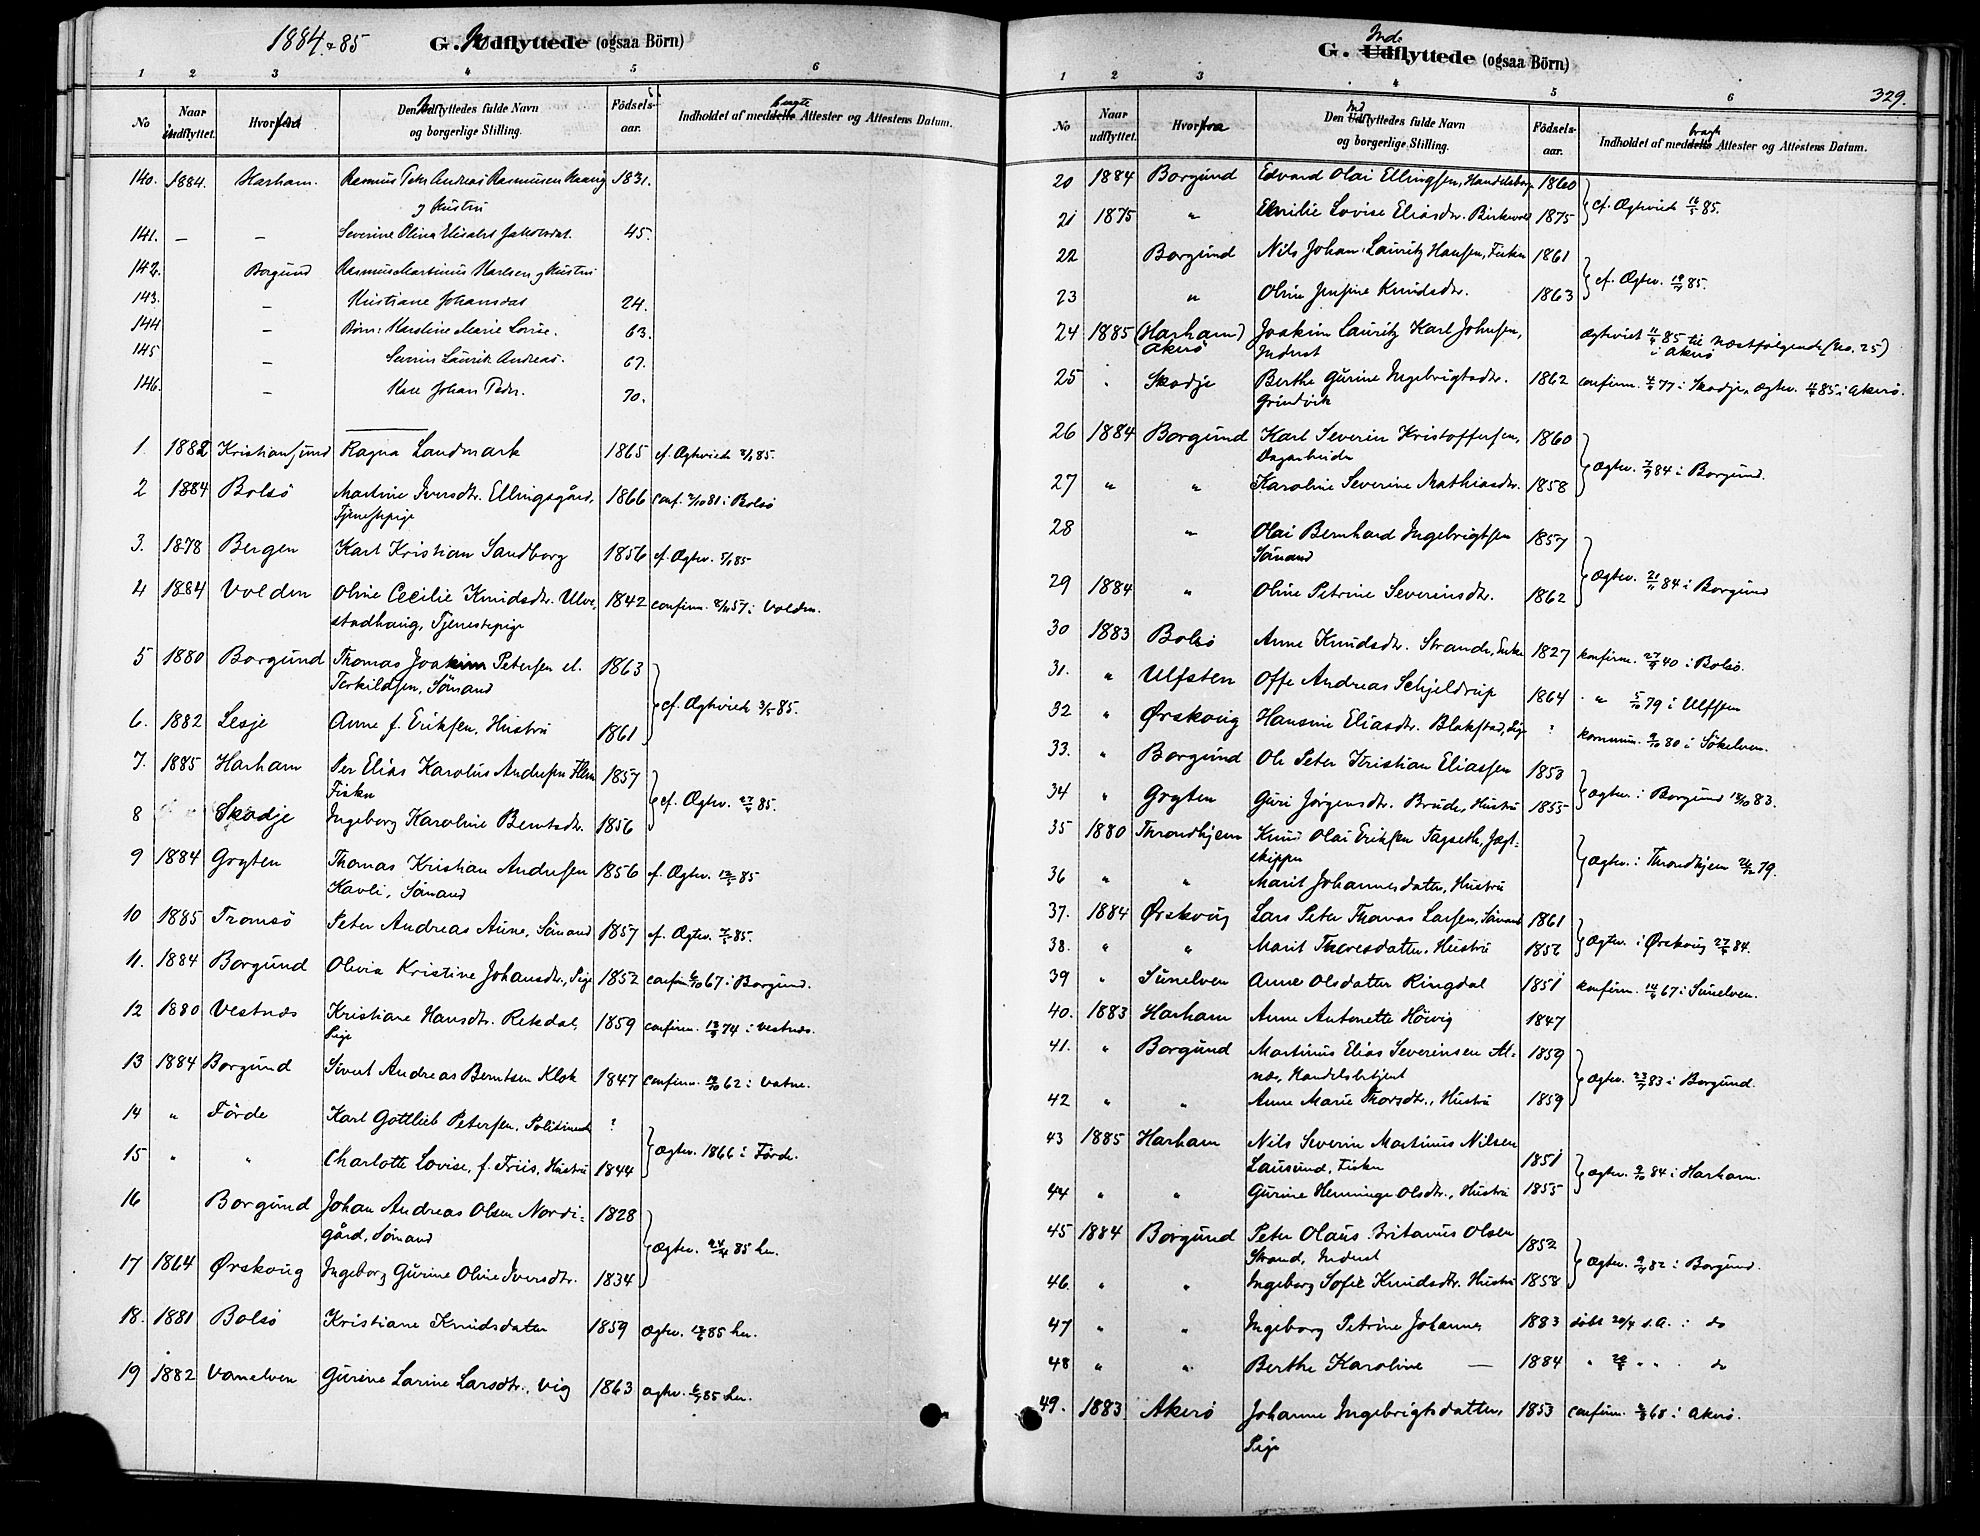 1884 & 85
G. Indflyttede (ogsaa Börn)
1 2 3 4 5 6
No
Naar indflyttet.
Hvorfra
Den Indflyttedes fulde Navn
og borgerlige Stilling.
Födsels-
aar.
Indholdet af medbragte Attester og Attestens Datum.
140. 1884. Harham. Rasmus Peter Andreas Rasmusen 1831.
g Hustru
141. — — Severine Olina 45.
142. Borgund Rasmus Martinus Karlsen g Hustru
143. — Kristiane Johansdat 24.
144 — Börn: Karoline Marie Lovise. 63.
145 — Severin Laurits Andreas. 67.
146. — Kare Johan Peder. 70.
1. 1882 Kristiansund Ragna Landmark 1865 cf. Ægteviede 85.
2 1884 Bolsö Martine Iversdtr. Ellingsgård, 1866 conf. 2/10 81 i Bolsö
Tjenestepige
3. 1878 Bergen Karl Kristian Sandborg 1856 cf. Ægtev. 85
4 1884 Volden Oline Cecilie Knudsdtr. Ulve, 1842 confirm. 57 i Volden.
stadhaug, Tjenestepige
5 1880 Borgund Thomas Joakim Petersen el. 1863
Terkildsen, Sömand
cf. Ægteviede 3/5 85.
6. 1882 Lesje Anne f. Eriksen, Hustru 1861
7. 1885 Harham Per Elias Karolus Andersen Flem 1857
Fisker
cf. Ægtev. 85.
8 Skodje Ingeborg Karoline Berntsdtr. 1856
9 1884 Gryten Thomas Kristian Andersen 1856 cf. Ægtev. 85
Kavli, Sömand
10 1885 Tromsö Peter Andreas Aune, Sömand 1857 cf. Ægtev. 85.
11. 1884 Borgund Olivia Kristine Johansdtr., Pige 1852 confirm 67 i Borgund.
12 1880 Vestnæs Kristiane Hansdtr. Rekdal, 1859 confirm. 74 i Vestnæs.
Pige
13 1884 Borgund Sivert Andreas Berntsen Klok 1847 confirm. 62 i Vatne.
14 " Förde Karl Gottlieb Petersen, Politimand ?
Ægtev. 1866 i Förde.
15 " " Charlotte Lovise, f. Friis, Hustru 1844
16 Borgund Johan Andreas Olsen Nordi- 1828
gård, Sömand
Ægtev. 85 her.
17 1864 Ørskoug Ingeborg Gurine Oline Iversdtr. 1834
18. 1881 Bolsö Kristiane Knudsdatter 1859 Ægtev. 85 her.
19 1882 Vanelven Gurine Larine Larsdtr. Vig 1863 ægtev. 85 her.
329.
G. Indflyttede (ogsaa Börn)
1 2 3 4 5 6
No
Naar
udflyttet.
Hvorfra
Den Indflyttedes fulde Navn
og borgerlige Stilling.
Födsels-
aar.
Indholdet af medbragte Attester og Attestens Datum.
20 1884 Borgund Edvard Olai Ellingsen, Handelsborg. 1860
cf. Ægteviede 85.
21 1875 " Emilie Lovise Eliasdtr. Birkevold 1875
22 Borgund Nils Johan Lauritz Hansen, Fisker 1861
cf. Ægtev. 85.
23 " Oline Jensine Knudsdtr. 1863
24 1885 (Harham) Akerö Joakim Lauritz Karl Johnsen, Ægteviet 85 til næstfølgende (No. 25)
Inderst i Akerö
25 " Skodje Berthe Gurine Ingebrigtsdtr. 1862 confirm. 77 i Skodje, Ægtev. 85 i Akerö.
Grindvik
26 1884 Borgund Karl Severin Kristoffersen, 1860
Dagarbeider
Ægtev. 84 i Borgund.
27 " " Karoline Severine Mathiasdtr. 1858
28 " Olai Bernhard Ingebrigtsen 1857
Sömand
Ægtev. 84 i Borgund
29 1884 " Oline Petrine Severinsdtr. 1862
30 1883 Bolsö Anne Knudsdtr. Strande, Enke 1827 konfirm. 27/9 40 i Bolsö.
31. " Ulfsten Offe Andreas Schjeldrup 1864 " 5/10 79 i Ulfsten
32 " Ørskoug Hansine Eliasdtr. Blakstad, Pige " kommun. 80 i Sökelven.
33. " Borgund Ole Peter Kristian Eliassen 1853
Ægtev. i Borgund 18/10 83.
34 " Gryten Guri Jörgensdtr. Brude, Hustru 1855
35 1880 Throndhjem Knud Olai Eriksen Fagseth, Jagt-
skipper
Ægtev. i Throndhjem 79.
36 " " Marit Johannesdatter, Hustru
37. 1884 Ørskoug Lars Peter Thomas Larsen, Sömand 1861
Ægtev. i Ørskoug 84.
38. " " Marit Thoresdatter, Hustru 1856
39 " Sunelven Anne Olsdatter Ringdal 1851 konfirm. 67 i Sunelven.
40. 1883 Harham Anne Antonette Höivig 1847
41. " Borgund Martinus Elias Severinsen Al- 1859
næs, Handelsbetjent
Ægtev. 83 i Borgund.
42 " " Anne Marie Thorsdtr., Hustru 1859
43 1885 Harham Nils Severin Martinus Nilsen 1851
Lausund, Fisker
Ægtev. 84 i Harham.
44 " " Gurine Henninge Olsdtr., Hustru 1855
45 1884 Borgund Peter Olaus Britanus Olsen 1852
Strand, Inderst
Ægtev. 82 i Borgund.
46. " " Ingeborg Sofie Knudsdtr. Hustru 1858
47 " " Ingeborg Petrine Johanne 1883 döbt 20/4 s.A. i do
48 " " Berthe Karoline — 1884 " " " do
49. 1883 Akerö Johanne Ingebrigtsdatter, 1853 confirm. 68 i Akerö.
Pige